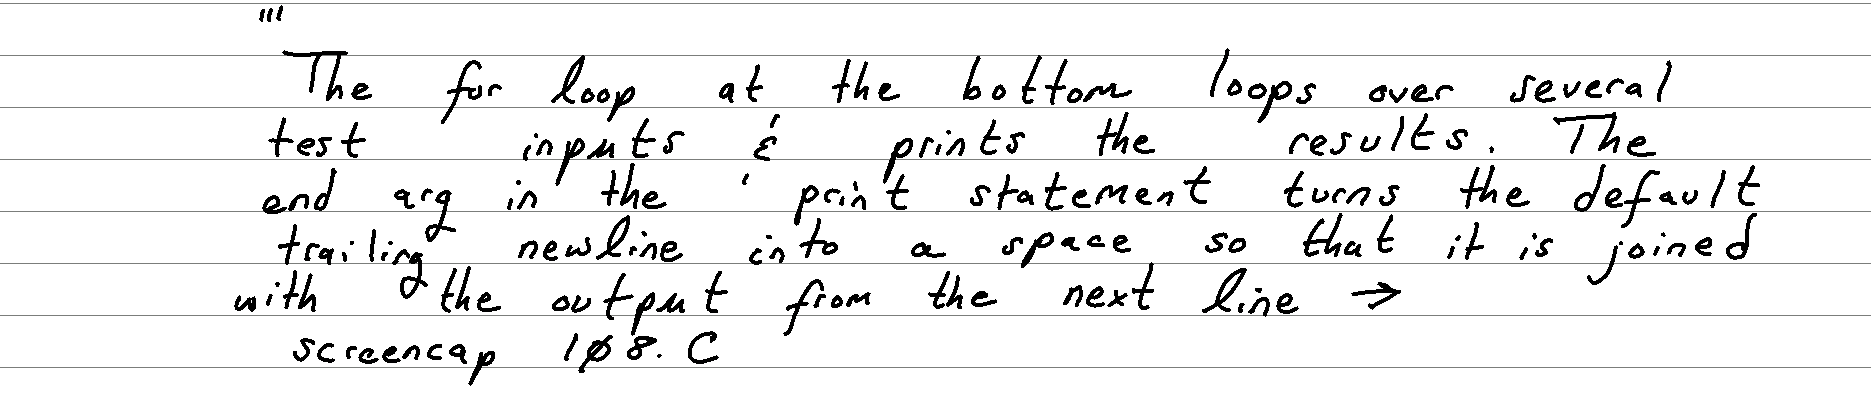 '''
The for loop at the bottom loops over several
test inputs & prints the results. The
end arg in the print statement turns the default
trailing newline into a space so that it is joined
with the output from the next line →
screencap 108.C